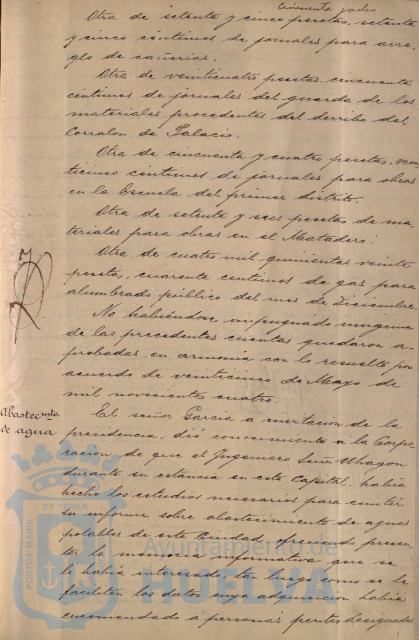 Cincuenta y ocho
Otra de setenta y cinco pesetas, setenta
y cinco céntimos de jornales para arre-
glo de cañerias.
Otra de veinticuatro pesetas, cincuenta
céntimos de jornales del guarda de los
materiales procedentes del derribo del
Corralon de Palacio.
Otra de cincuenta y cuatro pesetas, vein
ticinco céntimos de jornales para obras
en la Escuela del primer distrito.
Otra de setenta y seis pesetas de ma-
teriales para obras en el Matadero.
Otra de cuatro mil quinientas veinte
pesetas, cuarenta céntimos de gas para
alumbrado público del mes de Diciembre.
No habiéndose impugnado ninguna
de las precedentes cuentas quedaron a-
probadas en armonia con lo resuelto por
acuerdo de veinticinco de Mayo de
mil novecientos cuatro.
Abastecmto.
de agua
El señor Garcia a invitacion de la
presidencia, dió conocimiento a la Corpo-
racion, de que el Ingeniero Señor Uhagon
durante su estancia en esta Capital, habia
hecho los estudios necesarios para emitir
su informe sobre abastecimiento de aguas
potables de esta Ciudad ofreciendo presen-
tar la que se
le habia interesado, tan luego como se le
faciliten los datos cuya adquisicion habia
encomendado á personas peritas designadas
PORTUS MARIS ET TERRÆ
Ayuntamiento de
HUELVA